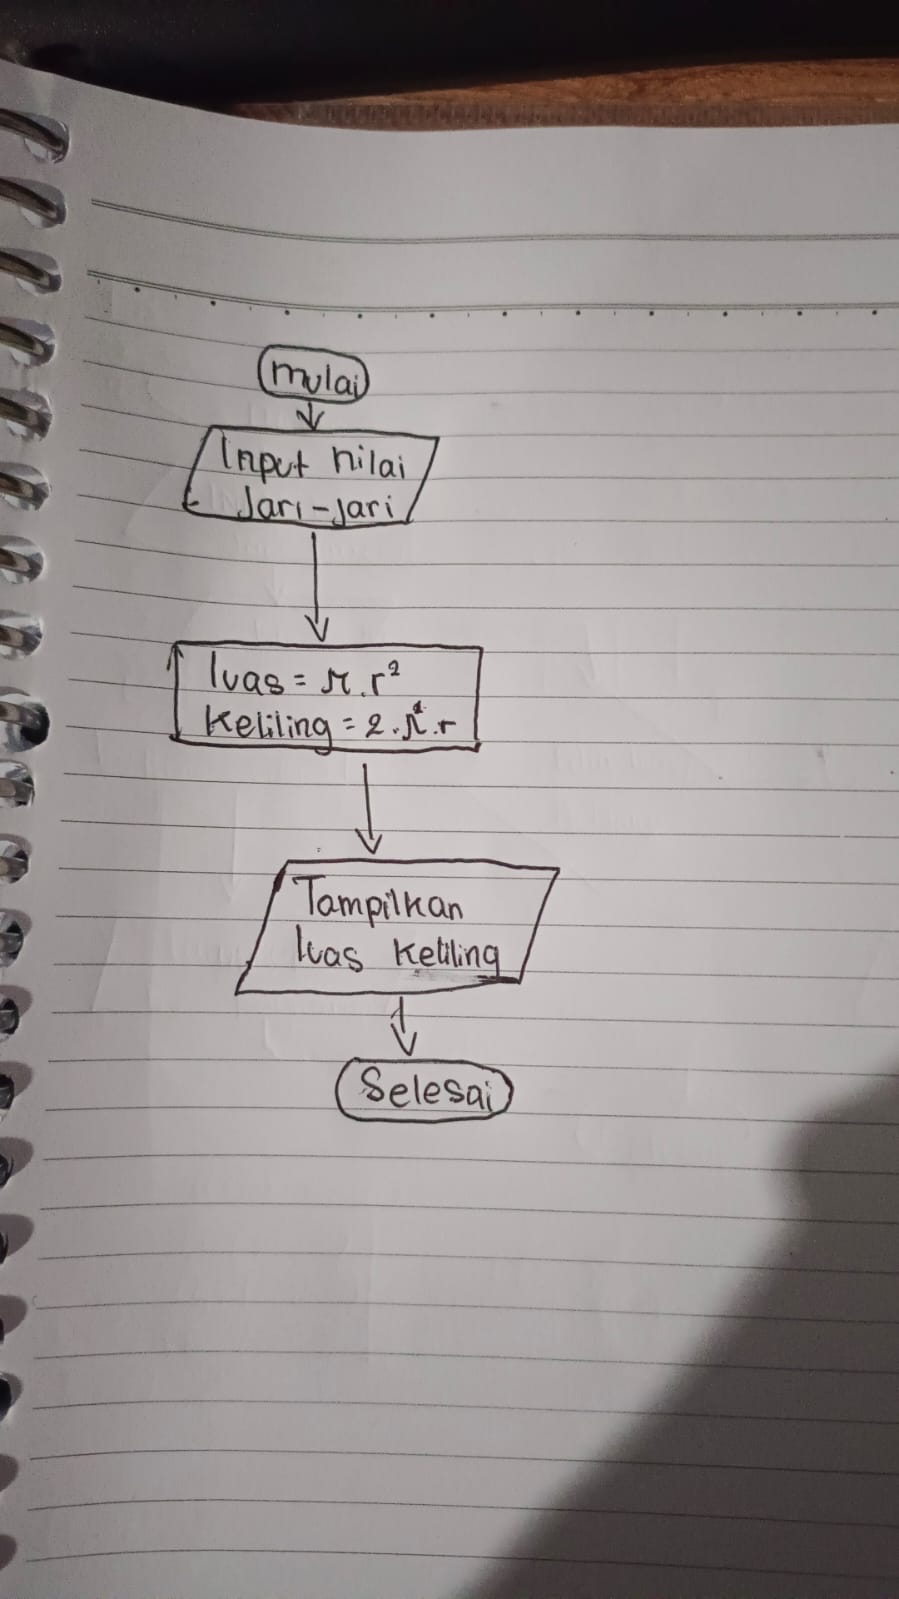 mulai
Input nilai
Jari-jari
luas = π.r²
Keliling = 2.π.r
Tampilkan
luas keliling
Selesai